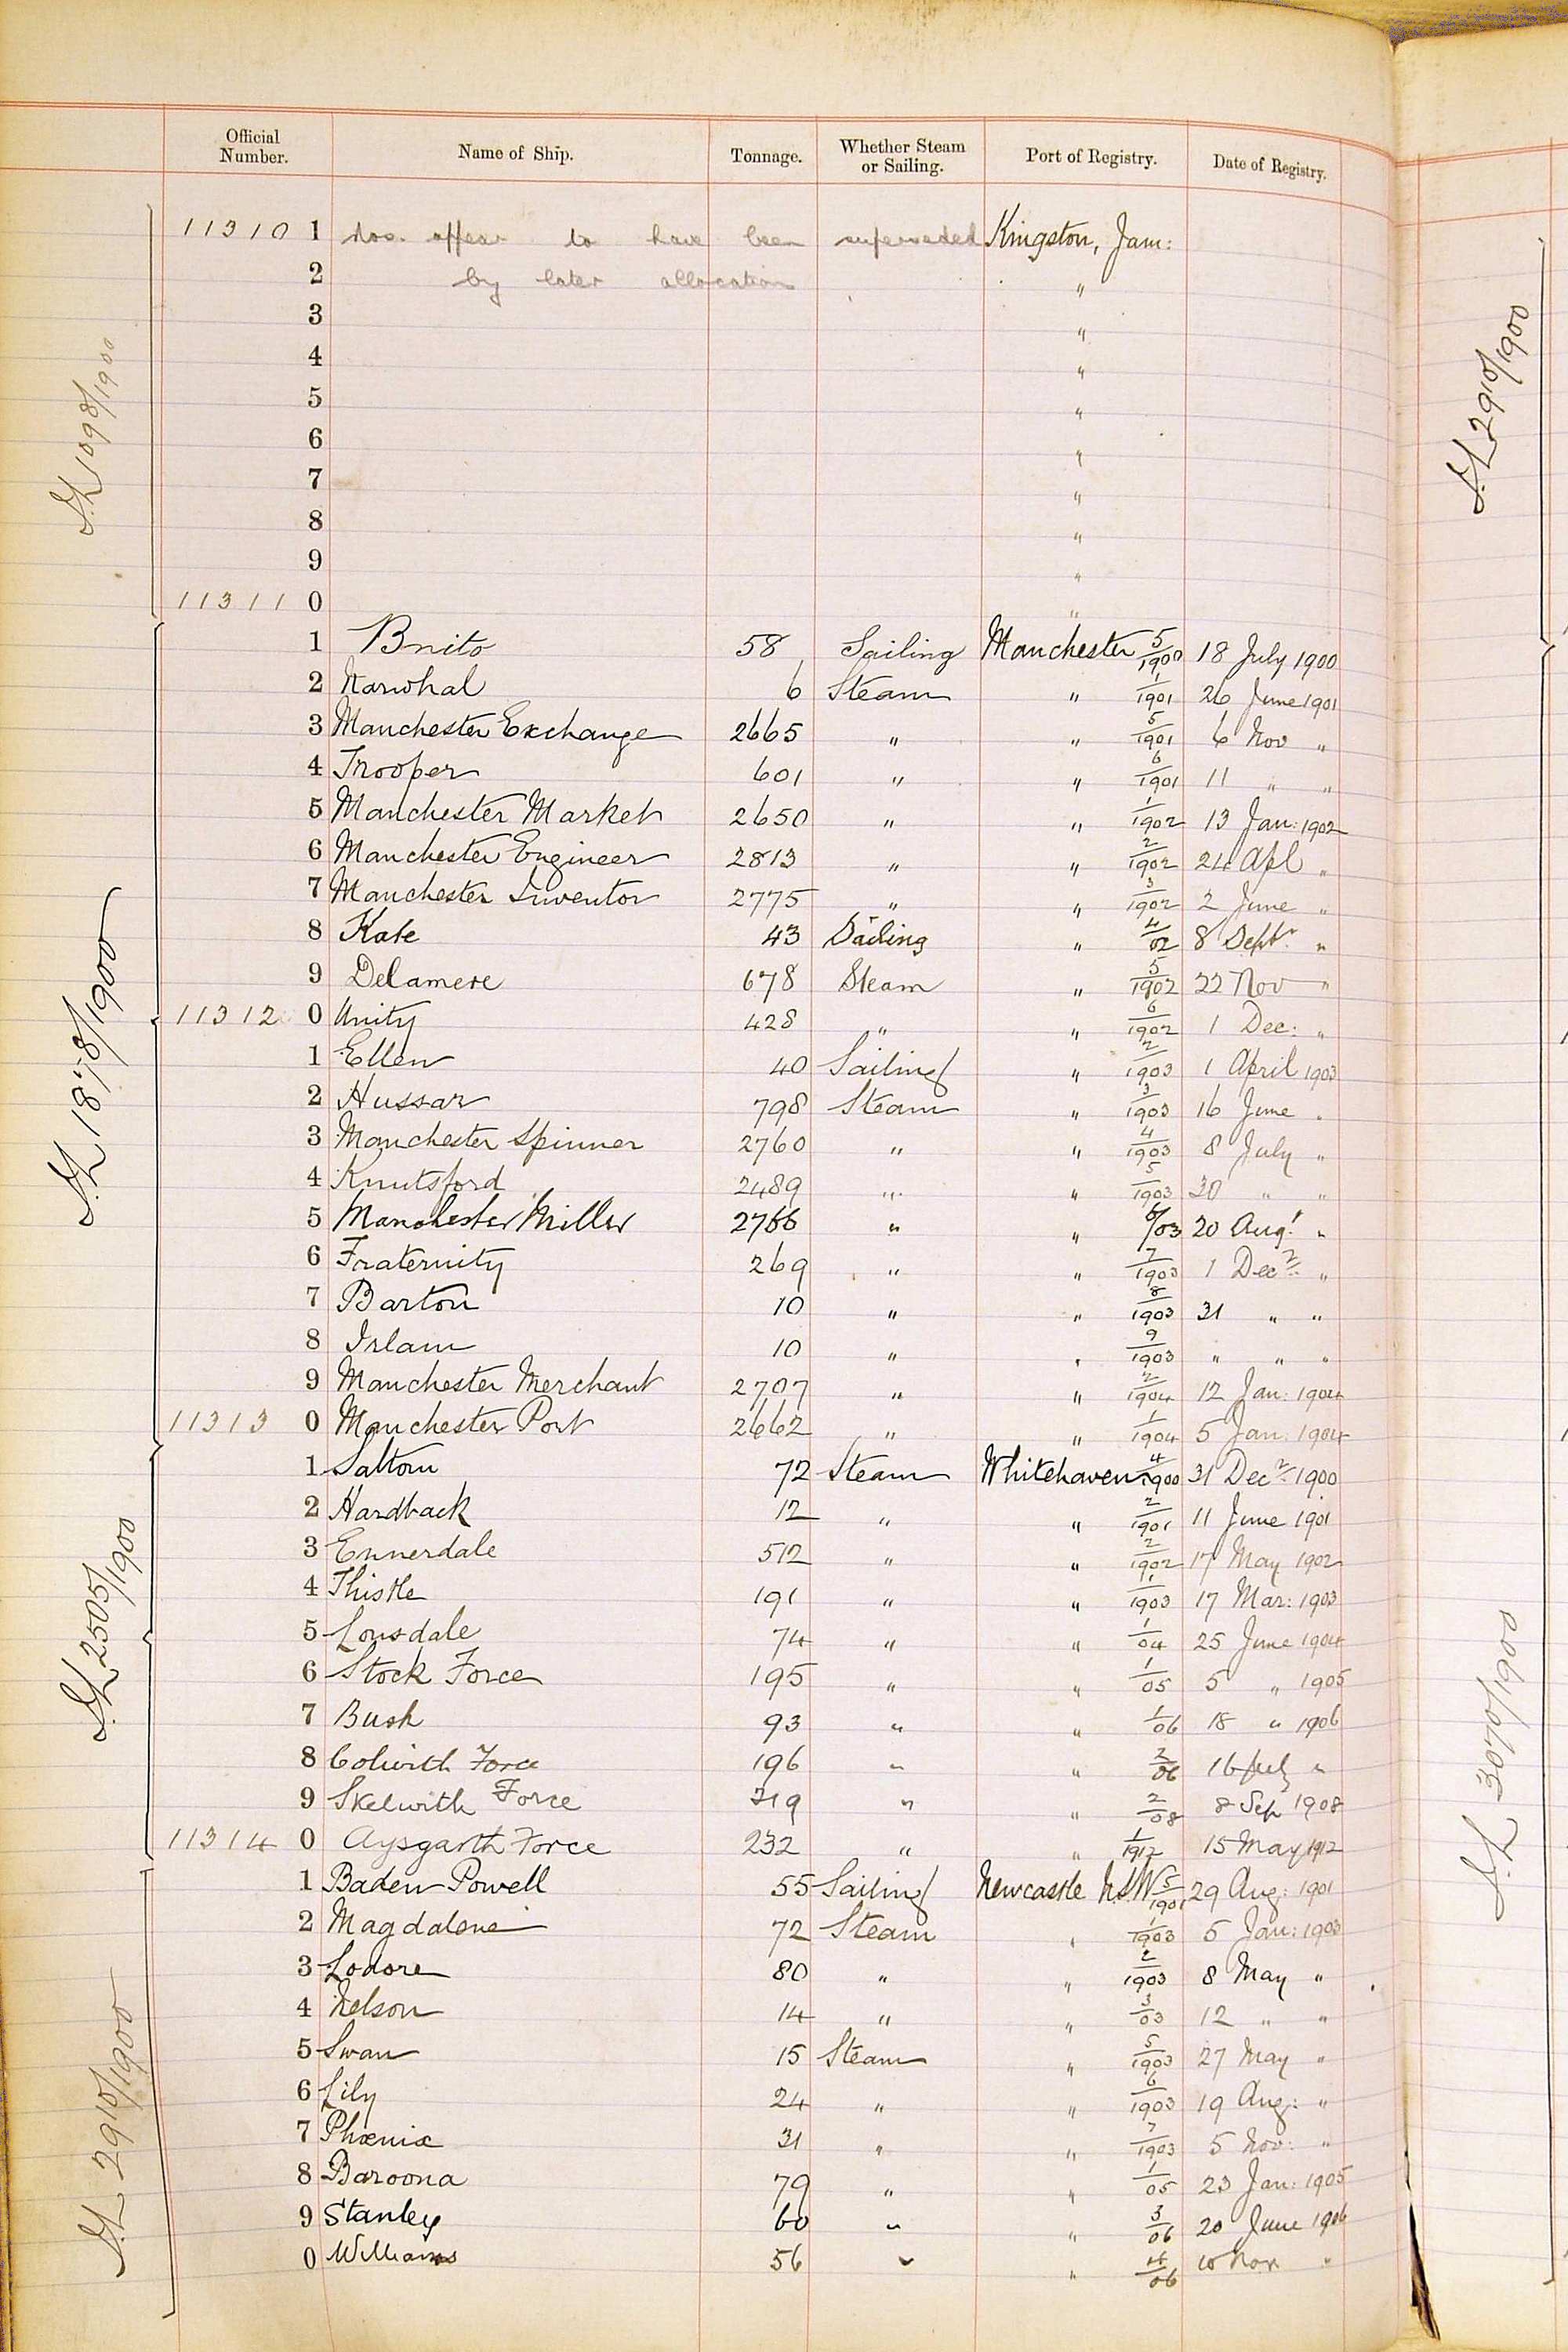 Official Number. Name of Ship. Tonnage. Whether Steam or Sailing. Port of Registry. Date of Registry.
11310 1 Nos. appear to have been superseded Kingston, Jam:
2 by later allocation "
3 "
4 "
5 "
6 "
7 "
8 "
9 "
11311 0 "
1 Brito 58 Sailing Manchester 5/1900 18 July 1900
2 Narwhal 6 Steam " 1/1901 26 June 1901
3 Manchester Exchange 2665 " " 5/1901 6 Nov "
4 Trooper 601 " " 6/1901 11 " "
5 Manchester Market 2650 " " 1/1902 13 Jan: 1902
6 Manchester Engineer 2813 " " 2/1902 24 Apl "
7 Manchester Inventor 2775 " " 3/1902 2 June "
8 Kate 43 Sailing " 4/02 8 Septr "
9 Delamere 678 Steam " 5/1902 22 Nov "
11312 0 Unity 428 " " 6/1902 1 Dec: "
1 Ellen 40 Sailing " 2/1903 1 April 1903
2 Hussar 798 Steam " 3/1903 16 June "
3 Manchester Spinner 2760 " " 4/1903 8 July "
4 Knutsford 2489 " " 5/1903 30 " "
5 Manchester Miller 2766 " " 6/03 20 Augt "
6 Fraternity 269 " " 7/1903 1 Decr "
7 Barton 10 " " 8/1903 31 " "
8 Irlam 10 " " 9/1903 " " "
9 Manchester Merchant 2707 " " 2/1904 12 Jan: 1904
11313 0 Manchester Port 2662 " " 1/1904 5 Jan: 1904
1 Saltom 72 Steam Whitehaven 4/1900 31 Decr 1900
2 Hardback 12 " " 2/1901 11 June 1901
3 Ennerdale 512 " " 2/1902 17 May 1902
4 Thistle 191 " " 1/1903 17 Mar: 1903
5 Lonsdale 74 " " 1/04 25 June 1904
6 Stock Force 195 " " 1/05 5 " 1905
7 Bush 93 " " 1/06 18 " 1906
8 Colwith Force 196 " " 2/06 16 July "
9 Skelwith Force 319 " " 2/08 8 Sep 1908
11314 0 Aysgarth Force 232 " " 1/1912 15 May 1912
1 Baden Powell 55 Sailing Newcastle NSW 5/1901 29 Aug: 1901
2 Magdalene 72 Steam " 1/1903 5 Jan: 1903
3 Lodore 80 " " 2/1903 8 May "
4 Nelson 14 " " 3/03 12 " "
5 Swan 15 Steam " 5/1903 27 May "
6 Lily 24 " " 6/1903 19 Aug: "
7 Phœnix 31 " " 7/1903 5 Nov: "
8 Baroona 79 " " 1/05 23 Jan: 1905
9 Stanley 60 " " 3/06 20 June 1906
0 Williams 56 " " 4/06 10 Nov "
S.L 1098/1900
S.L 1878/1900
S.L 2505/1900
S.L 2910/1900
S.L 2910/1900
S.L 3070/1900